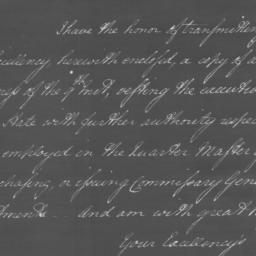 I have the honor of transmitting
Excellency herewith enclosed, a copy of a
ress of the 9th inst, vesting the executive
State with further authority respec
employed in the Quarter Master G
rchasing, or issuing Commissary Gene
tments — And am with great R
Your Excellency's